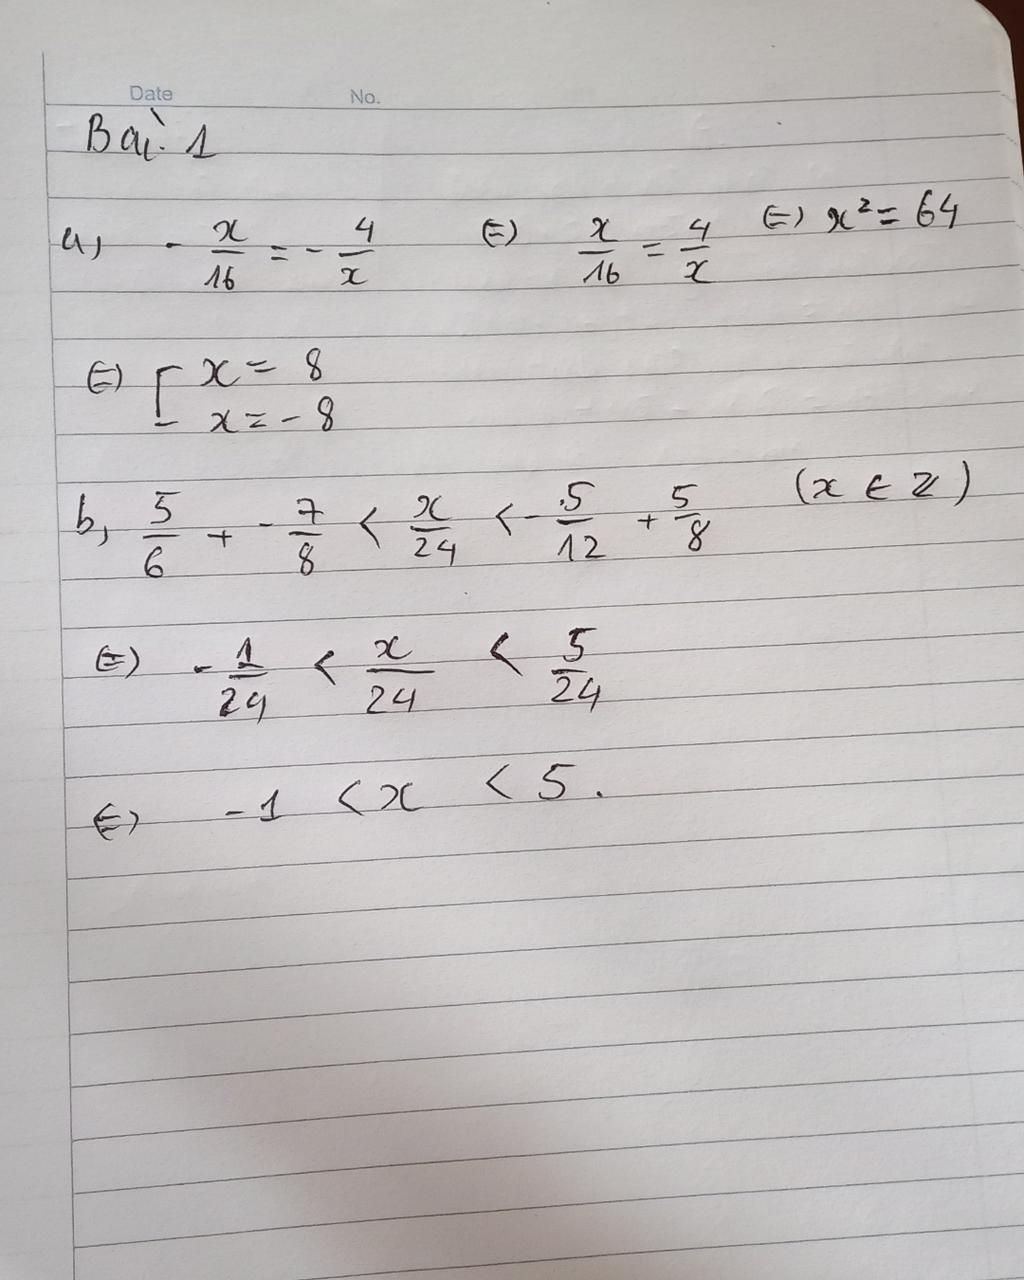 Date No.
Bài 1
a, - x/16 = - 4/x (=) x/16 = 4/x (=) x² = 64
(=) [ x = 8
x = - 8
b, 5/6 + - 7/8 < x/24 < - 5/12 + 5/8 (x ∈ Z)
(=) - 1/24 < x/24 < 5/24
(=) - 1 < x < 5.